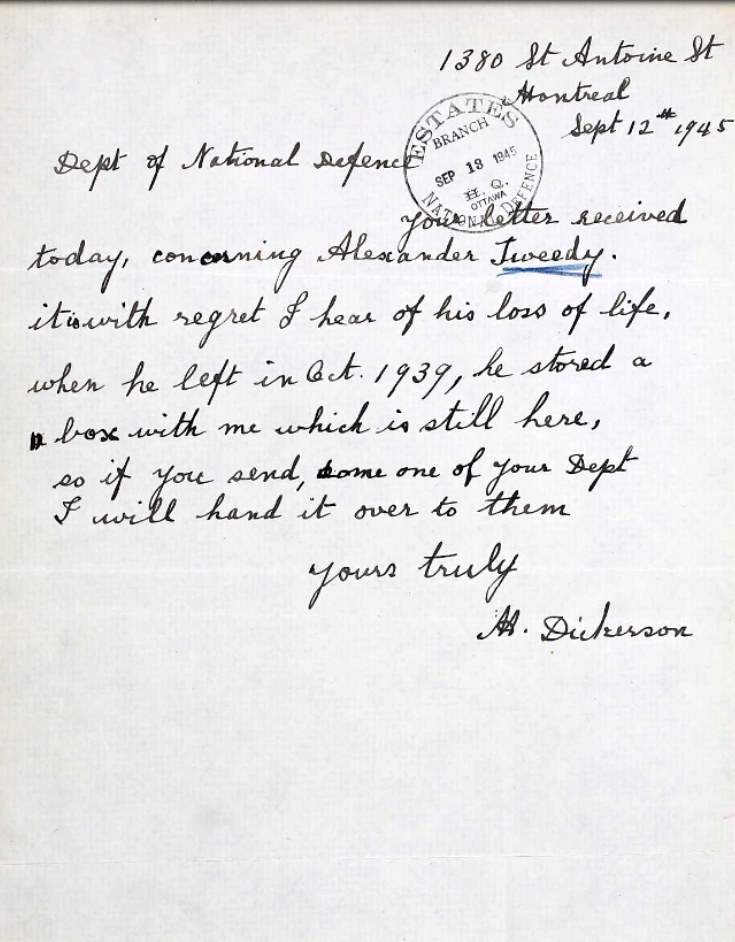 1380 St Antoine St
Montreal
Sept 12th 1945
ESTATES
BRANCH
SEP 13 1945
H. Q.
OTTAWA
NATIONAL DEFENCE
Dept of National Defence
your letter received
today, concerning Alexander Tweedy.
it is with regret I hear of his loss of life,
when he left in Oct. 1939, he stored a
box with me which is still here,
so if you send, some one of your Dept
I will hand it over to them
yours truly
H. Dickerson